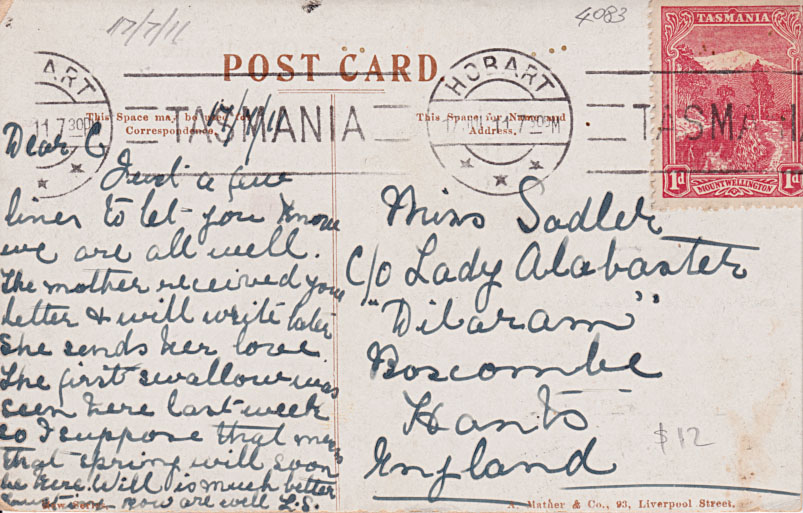 17/7/11
4083
TASMANIA
POST CARD
ART
HOBART
11 7 30PM
TASMANIA
17 JL 11 7 30PM
TASMANIA
This Space may be used for
Correspondence.
This Space for Name and
Address.
1d MOUNT WELLINGTON 1d
Dear C
Just a few
lines to let you know
we are all well.
The mother received your
letter & will write later
She sends her love.
The first swallow was
seen here last week
so I suppose that means
that spring will soon
be here. Will is much better
now are well L.S.
Miss Sadler
C/o Lady Alabaster
"Dilaram"
Boscombe
Hants
England
$12
Mather & Co., 93, Liverpool Street.